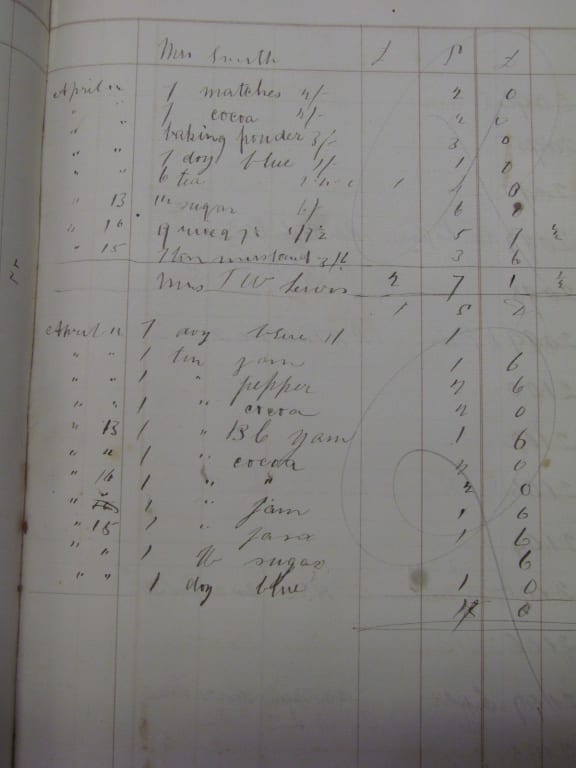 Mrs Smith £ s d
April 11 1 matches 2/- 2 0
" " 1 cocoa 2/- 2 0
" " baking powder 3/- 3 0
" " 1 doz blue 1/- 1 0
" " 6 tea 1 4 0
" 13 sugar 6/ 6 0
" 16 5 7 ½
" 15 3 6
Mrs T W Lewis £ 2 7 1 ½
1 5 d
April 11 1 doz blue 1/ 1
" " 1 tin jam 1 6
" " 1 " pepper 2 6
" " 1 " cocoa 2 0
" 13 1 " B b jam 1 6
" " 1 " cocoa 2 0
" 14 1 " " 2 0
" " 1 " jam 1 6
" 15 1 " jam 1 6
" " 1 lb sugar 6
" " 1 doz blue 1 0
0